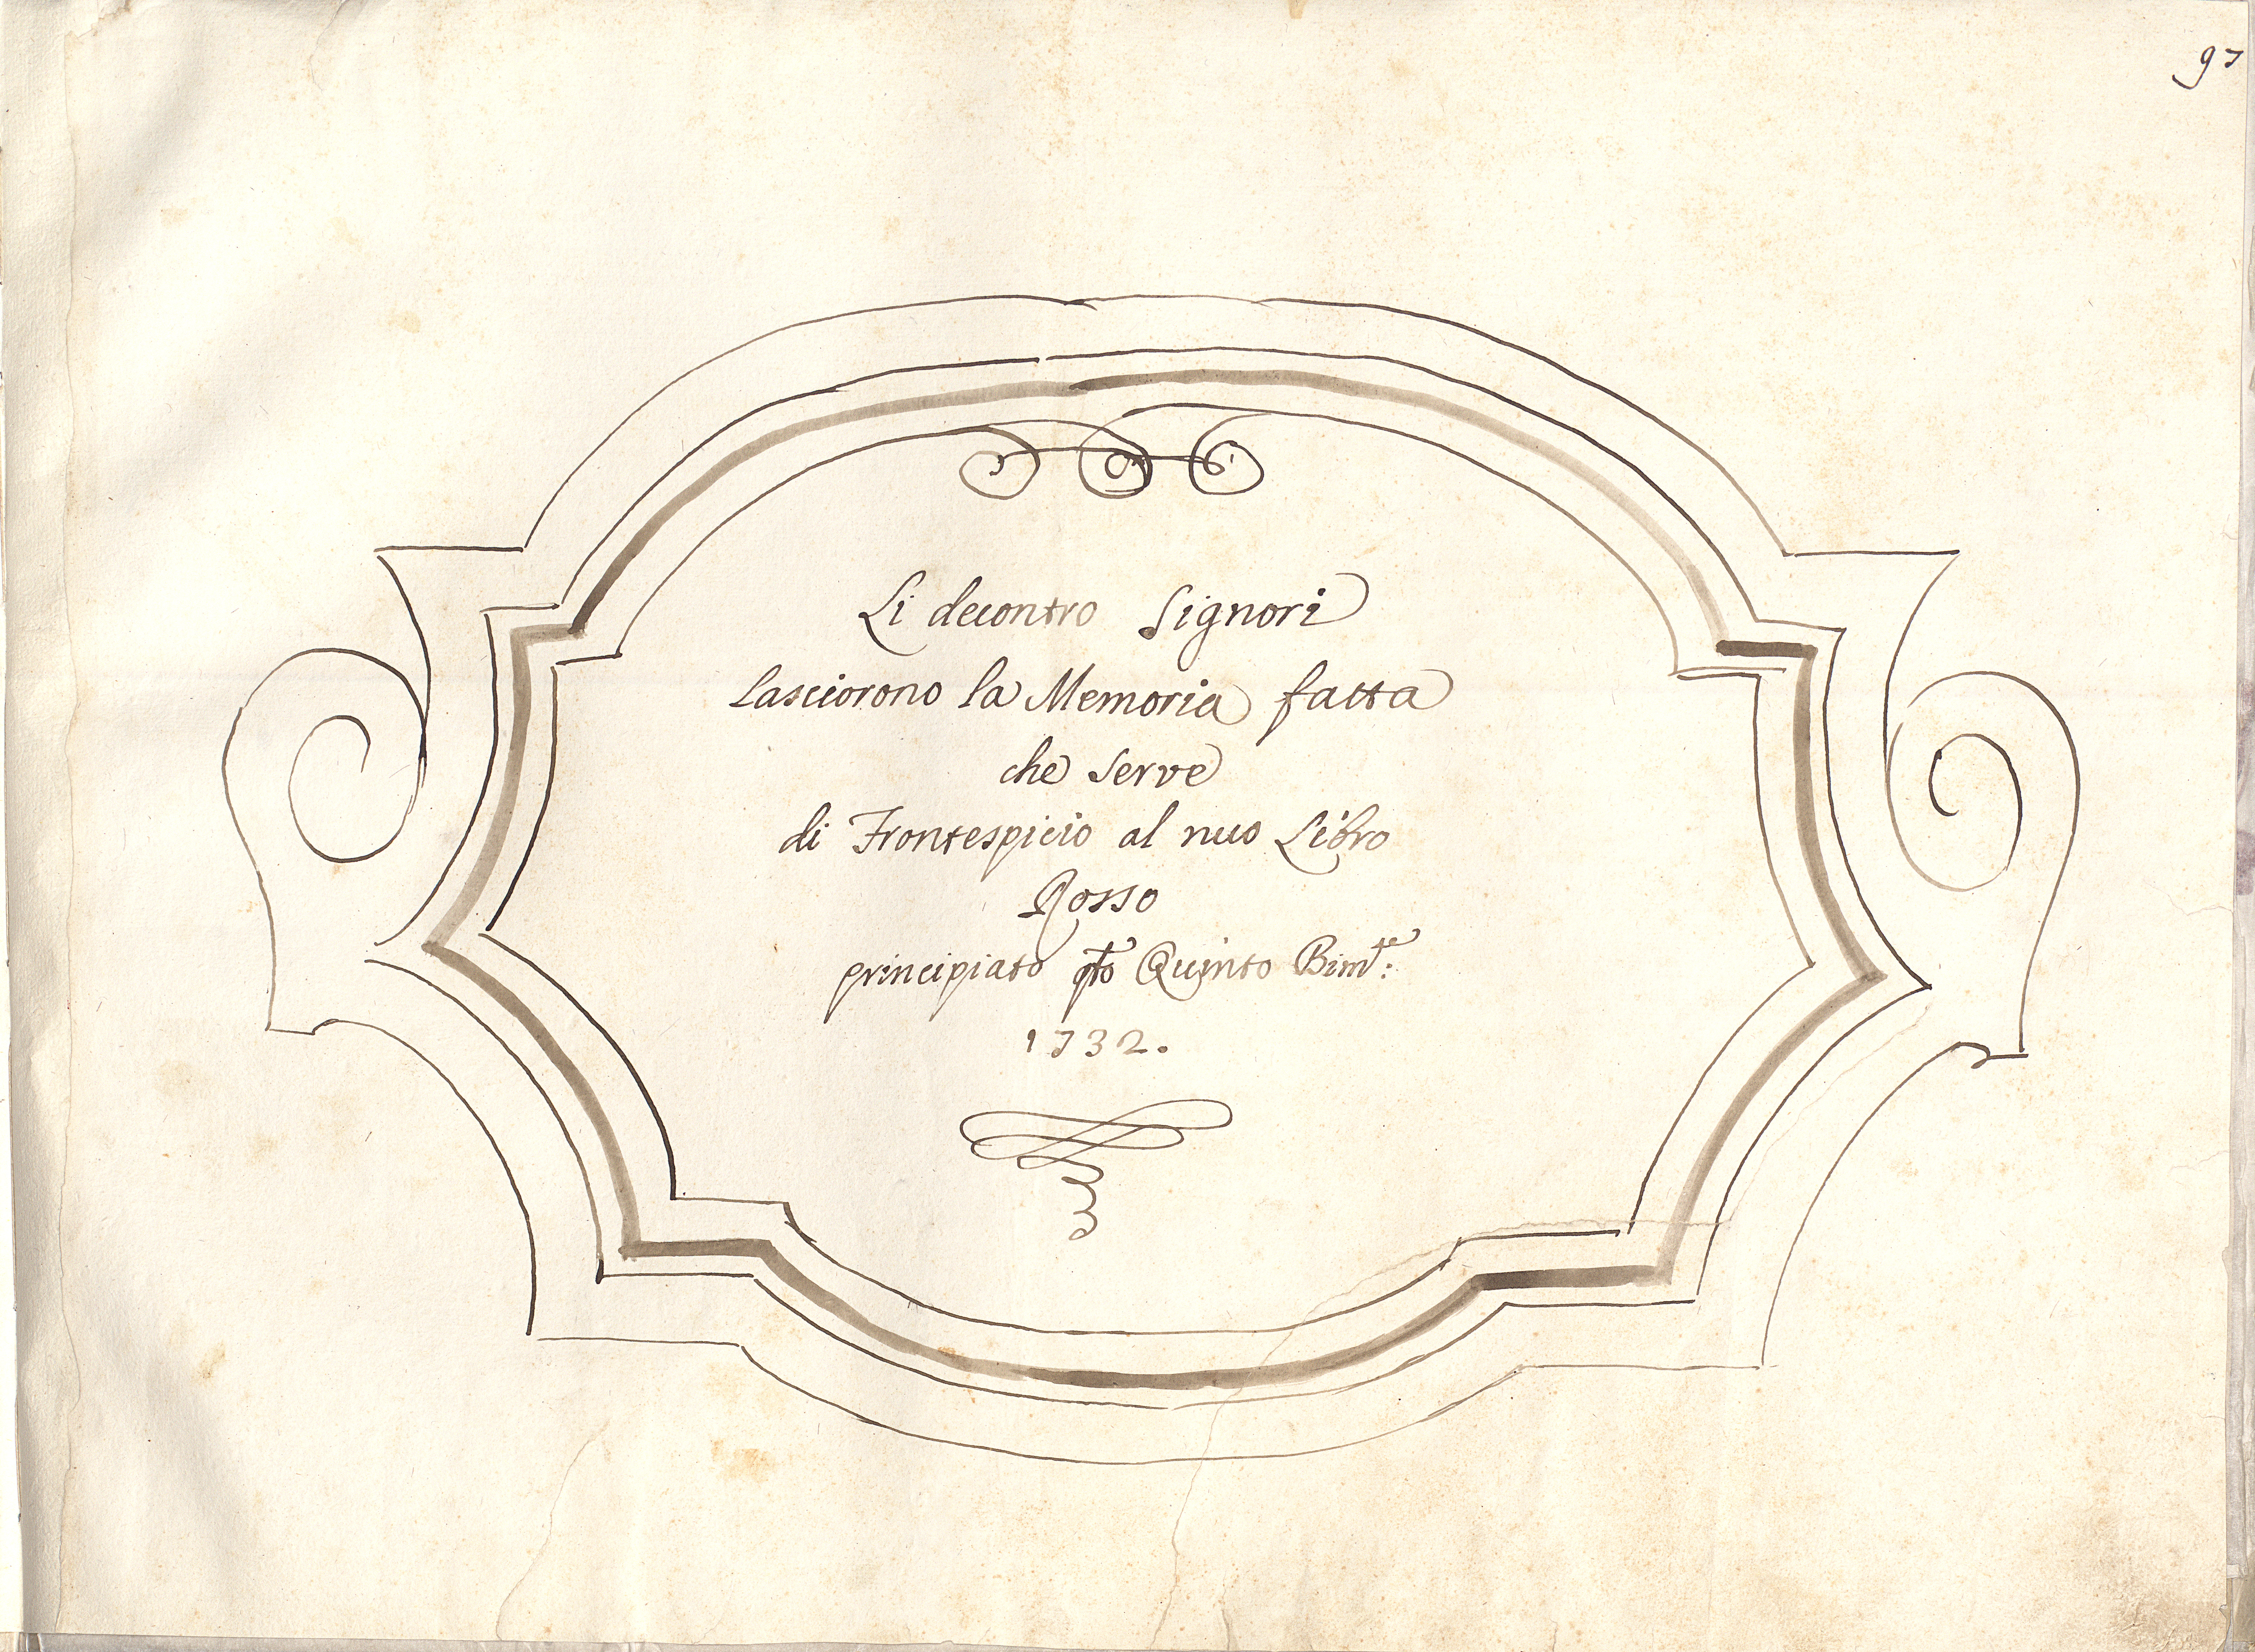 97
Li decontro Signori
lasciorono la Memoria fatta
che serve
di Frontespicio al nuo Libro
Rosso
principiato qto Quinto Bimte:
1732.